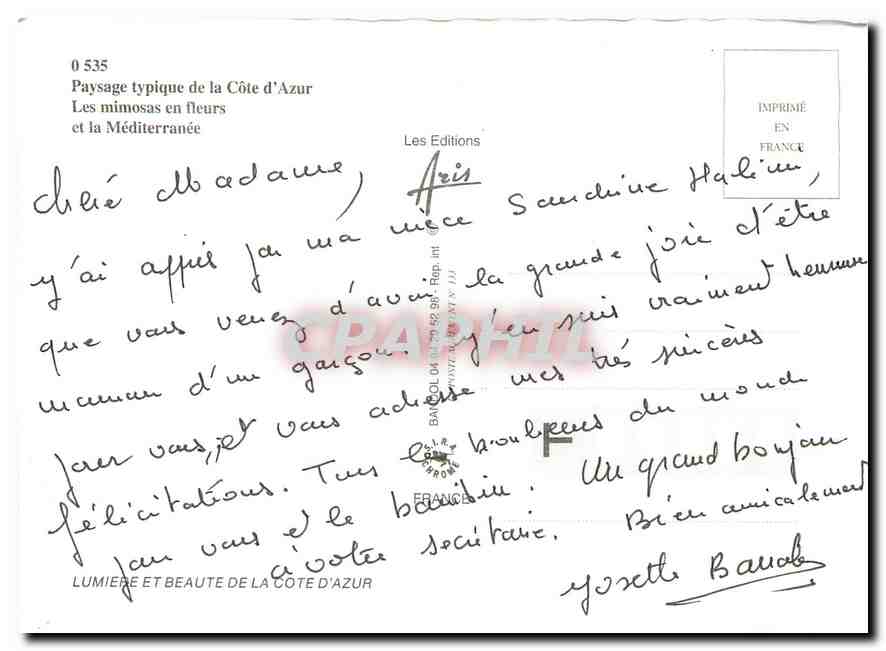 0 535
Paysage typique de la Côte d'Azur
Les mimosas en fleurs
et la Méditerranée
Les Editions
Aris
IMPRIMÉ
EN
FRANCE
Chère Madame,
y'ai appris par ma nièce Sandrine Halimi,
que vous venez d'avoir la grande joie d'être
maman d'un garçon. y'en suis vraiment heureuse
pour vous, et vous adresse mes très sincères
félicitations. Tous les bonheurs du monde
pour vous et le bambin. Un grand bonjour
à votre secrétaire. Bien amicalement
Yosette
BANDOL 04 94 29 52 98 - Rep. int
S.I.R.A.
CHROME
FRANCE
LUMIERE ET BEAUTE DE LA COTE D'AZUR
CPAPHIL